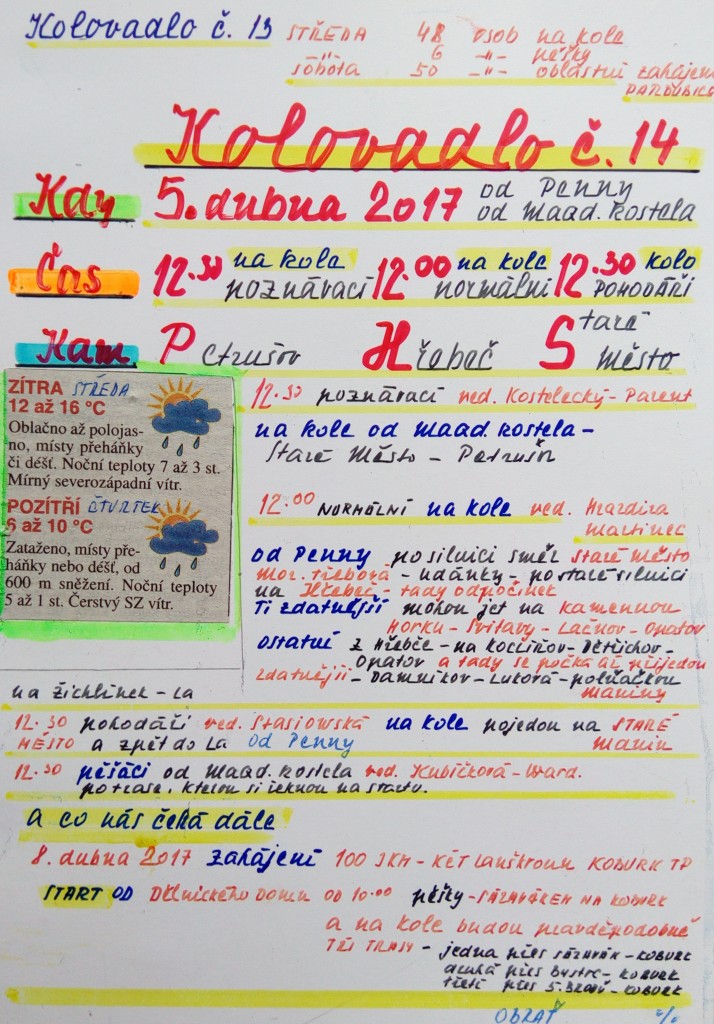 Kolovadlo č. 13
STŘEDA 48 osob na kole
-"- 6 -"- pěšky
sobota 50 -"- oblastní zahájení
PARDUBICE
Kolovadlo č. 14
Kdy 5. dubna 2017 od Penny
od Maad. kostela
Čas 12.30 na kole poznávací 12.00 na kole normální 12.30 kolo POHODÁŘI
Kam Petrušov Hřebeč Staré Město
ZÍTRA STŘEDA
12 až 16 °C
Oblačno až polojas-
no, místy přeháňky
či déšť. Noční teploty 7 až 3 st.
Mírný severozápadní vítr.
POZÍTŘÍ ČTVRTEK
6 až 10 °C
Zataženo, místy pře-
háňky nebo déšť, od
600 m sněžení. Noční teploty
5 až 1 st. Čerstvý SZ vítr.
12.30 poznávací ved. Kostelecký - Parent
na kole od Maad. kostela -
Staré Město - Petrušov
12.00 NORMÁLNÍ na kole ved. Hrazdira
Martinec
od Penny po silnici směr Staré Město
Mor. Třebová - Udánky - po staré silnici
na Hřebeč - tady odpočinek
Ti zdatnější mohou jet na Kamennou
Horku - Svitavy - Lačnov - Opatov
ostatní z Hřebče - na Koclířov - Dětřichov -
Opatov a tady se počká až přijedou
zdatnější - Damníkov - Luková - polňačkou
Mariny
na Žichlínek - LA
12.30 pohodáři ved. Stasiowská na kole pojedou na STARÉ
MĚSTO a zpět do LA od Penny
12.30 pěšáci od Maad. kostela ved. Kubíčková - Ward.
po trase, kterou si řeknou na startu.
a co nás čeká dále
8. dubna 2017 zahájení 100 JKM - KČT Lanškroun KOBURK TP
START OD Dělnického Domu OD 10.00 pěšky - SÁZAVÁKEM NA KOBURK
a na kole budou pravděpodobně
TŘI TRASY - jedna přes SÁZAVÁK - KOBURK
druhá přes Bystřec - KOBURK
třetí přes 5. BRODŮ - KOBURK
OBRAŤ %